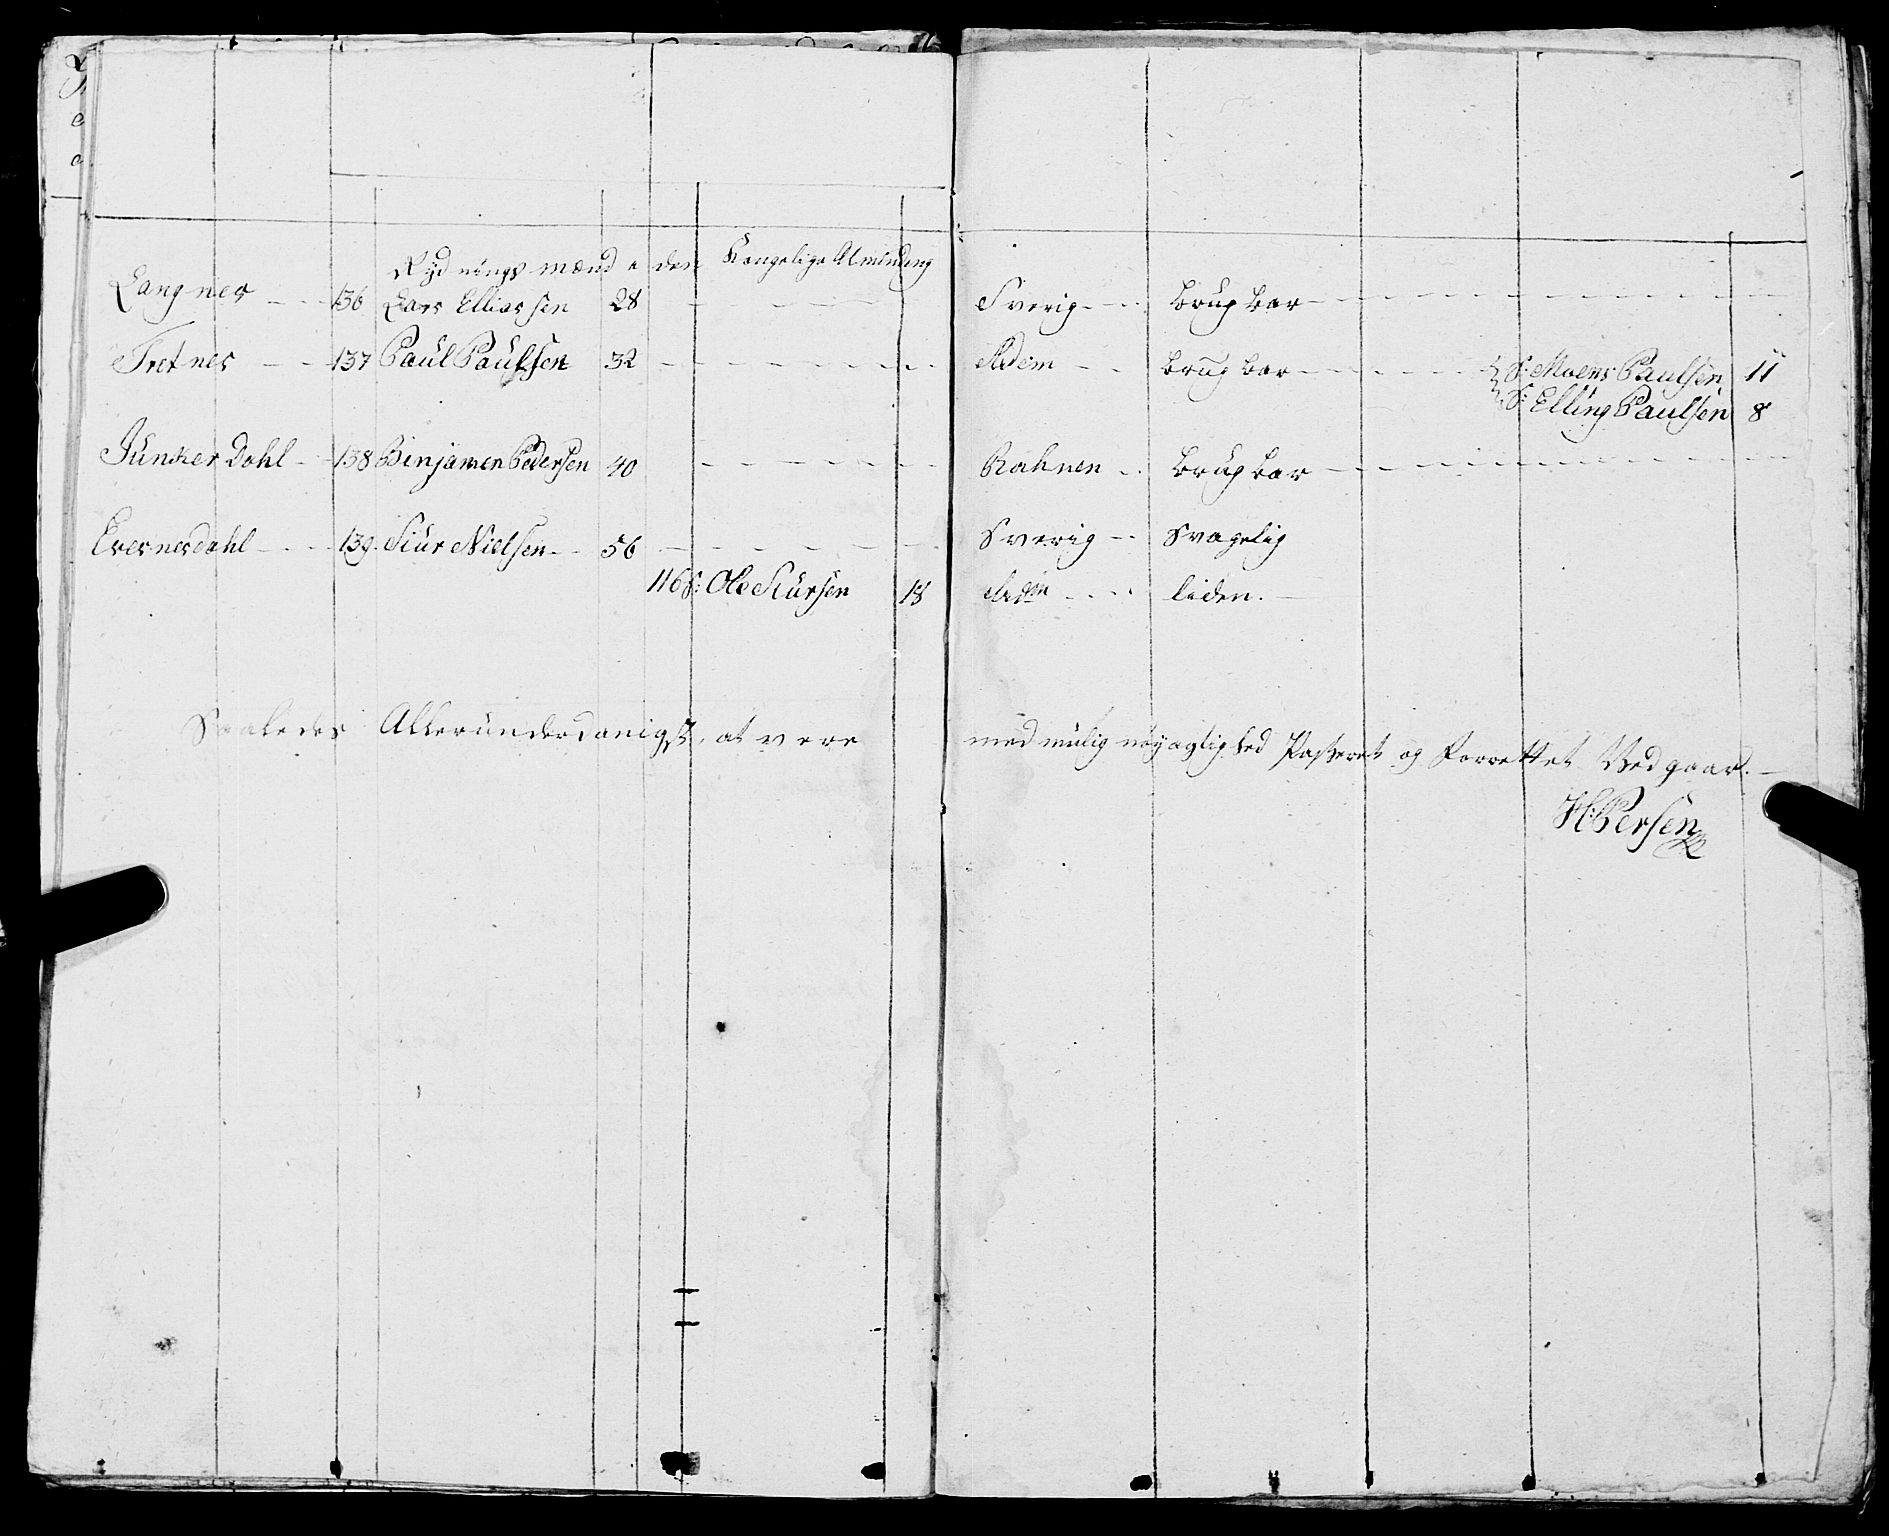 Rydnings mænd i den Kongelige Alminding
Langnes 136 Lars Elliassen 28 Sverig brugbar
Tretnes 137 Paul Paulsen 32 Adem brugbar S: Moens Paulsen 11
S: Elling Paulsen 8
Junker Dahl 138 Binjamen Pedersen 40 Rahnen brugbar
Evernesdahl 139 Siur Nielsen 56 Sverig Svagelig
116 S: Ole Siursen 18 liden.
Saaledes Allerunderdanigst, at vere med mulig nøyaglighed Passeret og Forrettet Vedgaar.
H: Persen